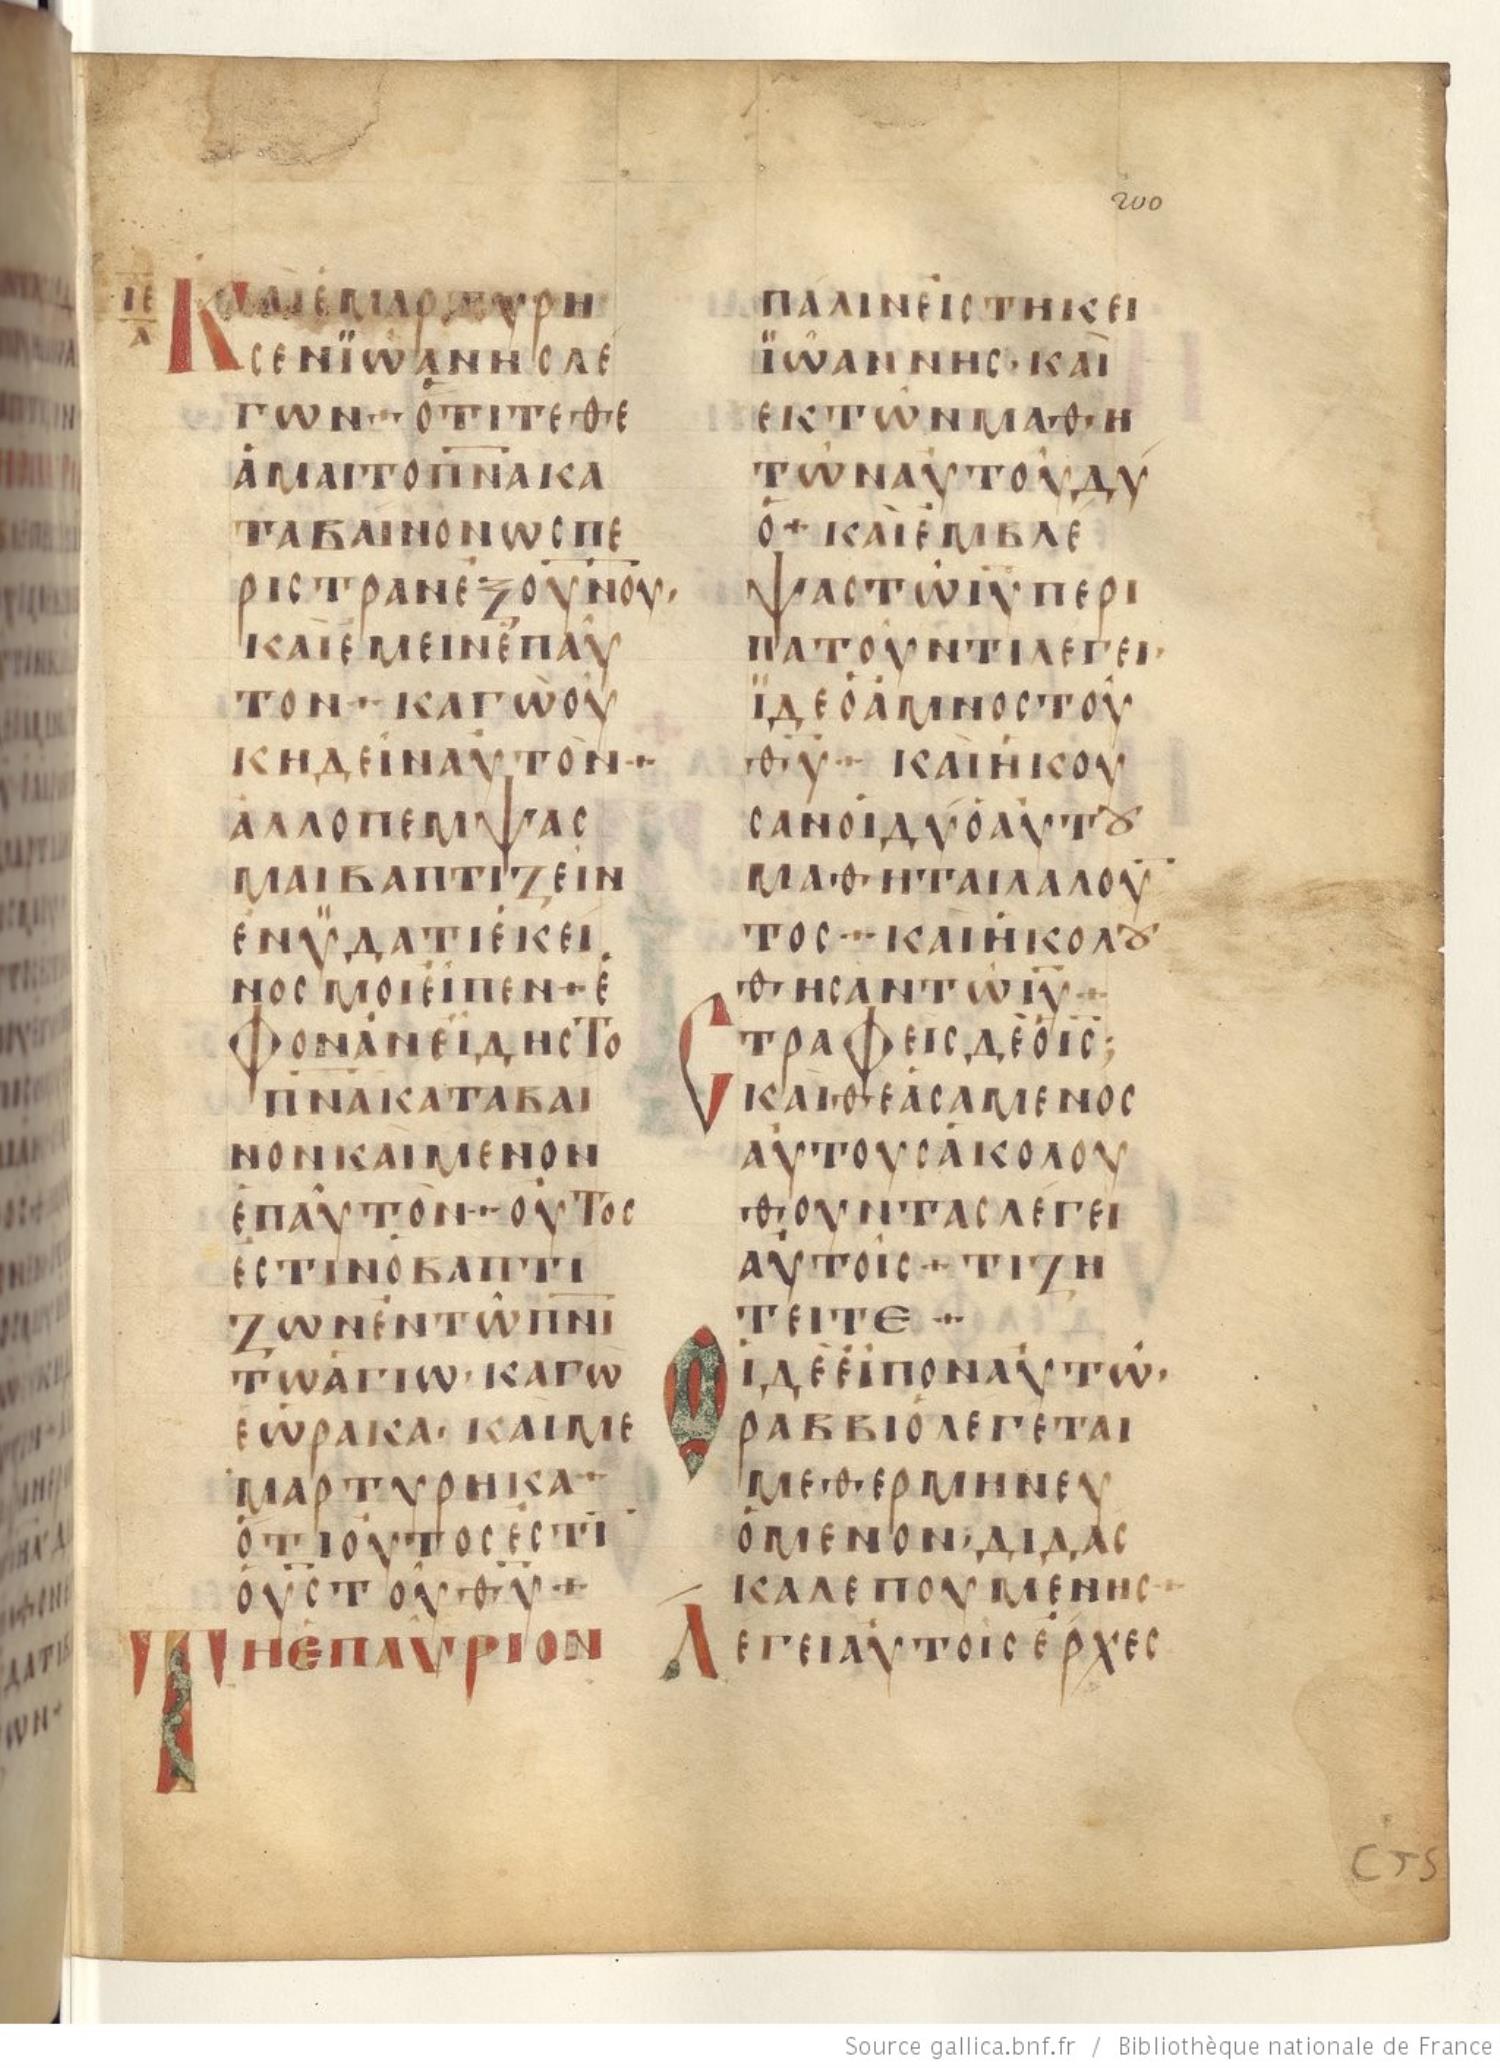 200
ΙΕ
Α
ΚΑΙΕΜΑΡΤΥΡΗ
ΣΕΝΪΩΑΝΗΣΛΕ
ΓΩΝ·ΟΤΙΤΕΘΕ
ΑΜΑΙΤΟΠΝΑΚΑ
ΤΑΒΑΙΝΟΝΩΣΠΕ
ΡΙΣΤΡΑΝΕΞΟΥΝΟΥ·
ΚΑΙΕΜΕΙΝΕΠΑΥ
ΤΟΝ+ΚΑΓΩΟΥ
ΚΗΔΕΙΝΑΥΤΟΝ+
ΑΛΛΟΠΕΜΨΑΣ
ΜΑΙΒΑΠΤΙΖΕΙΝ
ΕΝΫΔΑΤΙΕΚΕΙ
ΝΟΣΜΟΙΕΙΠΕΝ+Ε
ΦΟΝΑΝΕΙΔΗΣΤΟ
ΠΝΑΚΑΤΑΒΑΙ
ΝΟΝΚΑΙΜΕΝΟΝ
ΕΠΑΥΤΟΝ+ΟΥΤΟΣ
ΕΣΤΙΝΟΒΑΠΤΙ
ΖΩΝΕΝΤΩΠΝΙ
ΤΩΑΓΙΩ·ΚΑΓΩ
ΕΩΡΑΚΑ·ΚΑΙΜΕ
ΜΑΡΤΥΡΗΚΑ+
ΟΤΙΟΥΤΟΣΕΣΤΙ
ΟΥΣΤΟΥΘΥ+
ΤΗΕΠΑΥΡΙΟΝ
ΠΑΛΙΝΕΙΣΤΗΚΕΙ
ΪΩΑΝΝΗΣ·ΚΑΙ
ΕΚΤΩΝΜΑΘΗ
ΤΩΝΑΥΤΟΥΔΥ
Ο+ΚΑΙΕΜΒΛΕ
ΨΑΣΤΩΙΥΠΕΡΙ
ΠΑΤΟΥΝΤΙΛΕΓΕΙ·
ΪΔΕΟΑΜΝΟΣΤΟΥ
ΘΥ+ΚΑΙΗΚΟΥ
ΣΑΝΟΙΔΥΟΑΥΤȣ
ΜΑΘΗΤΑΙΛΑΛΟΥ
ΤΟΣ+ΚΑΙΗΚΟΛȣ
ΘΗΣΑΝΤΩΙΥ+
ΣΤΡΑΦΕΙΣΔΕΟΙΣ;
ΚΑΙΘΕΑΣΑΜΕΝΟΣ
ΑΥΤΟΥΣΑΚΟΛΟΥ
ΘΟΥΝΤΑΣΛΕΓΕΙ
ΑΥΤΟΙΣ+ΤΙΖΗ
ΤΕΙΤΕ+
ΟΙΔΕΕΙΠΟΝΑΥΤΩ·
ΡΑΒΒΙΟΛΕΓΕΤΑΙ
ΜΕΘΕΡΜΗΝΕΥ
ΟΜΕΝΟΝ·ΔΙΔΑΣ
ΚΑΛΕΠΟΥΜΕΝΗΣ+
ΛΕΓΕΙΑΥΤΟΙΣΕΡΧΕΣ
CTS
Source gallica.bnf.fr / Bibliothèque nationale de France